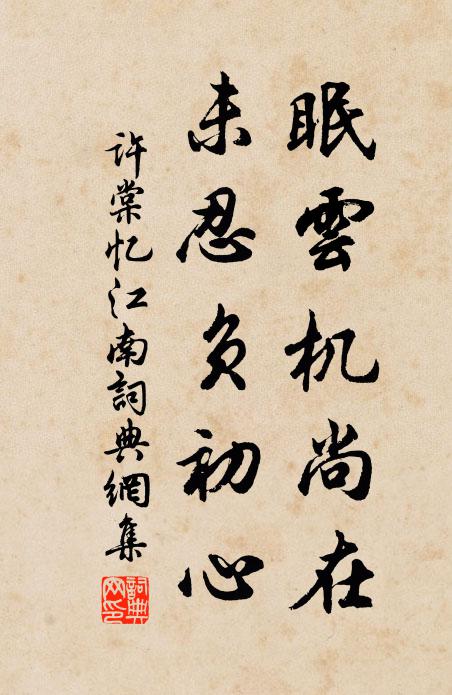 眠雲机尚在
未忍負初心
許棠忆江南詞典網集
詞典网印